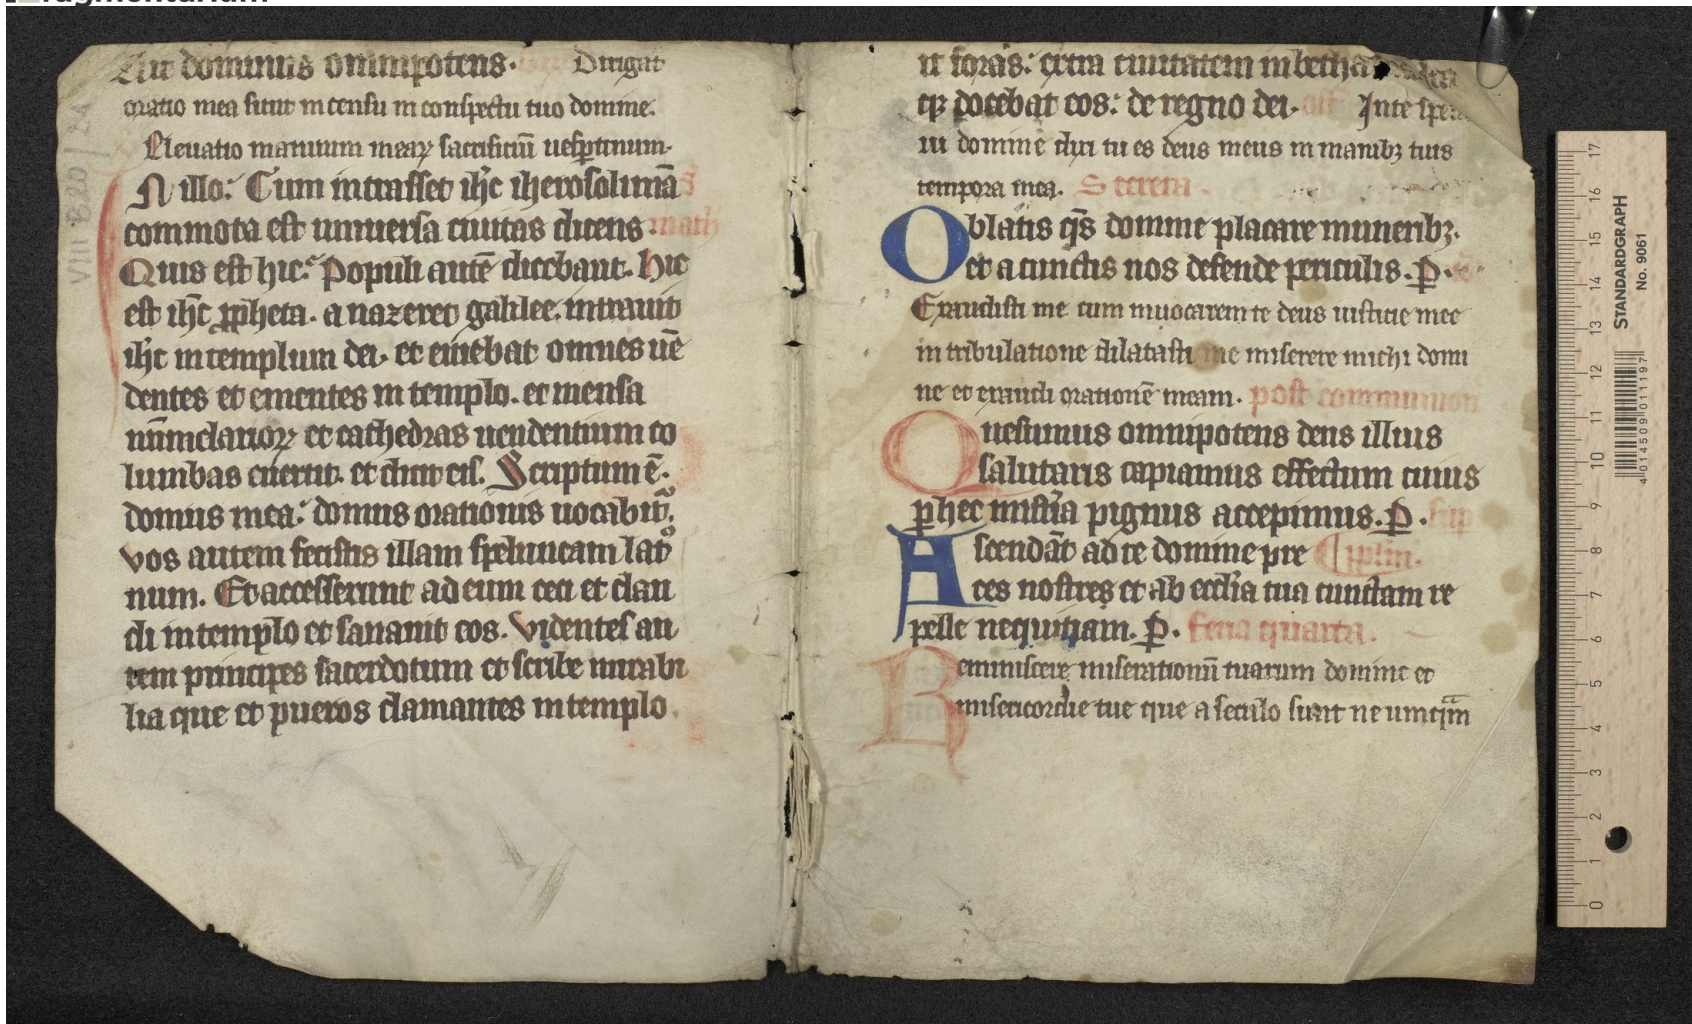 dominus omnipotens. Dirigat
oratio mea sicut incensu in conspectu tuo domine.
Eleuatio manuum meaꝝ sacrificiū uesꝑtinum.
IN illo. Cum intrasset ihc iherosolimā s
commota est uniuersa ciuitas dicens math
Quis est hic. Populi autē dicebant. hic
est ihc ꝓpheta. a nazereth galilee. intrauit
ihc in templum dei. et eiciebat omnes uē
dentes et ementes in templo. et mensa
nūmulariorꝝ et cathedras uendentium co
lumbas euertit. et dixit eis. Scriptum ē.
domus mea. domus orationis uocabit᷑.
vos autem fecistis illam speluncam lat͛o
num. Et accesserunt ad eum ceci et clau
di in templo et sanauit eos. Videntes au
tem principes sacerdotum et scribe mirabi
lia que et pueros clamantes in templo
it foras. extra ciuitatem in betha
qꝫ docebat eos. de regno dei. off Inte spera
ui domine dixi tu es deus meus in manibꝫ tuis
tempora mea. Secreta.
Oblatis qs̄ domine placare muneribꝫ.
et a cunctis nos defende periculis. P.
Exaudisti me cum inuocarem te deus iusticie mee
in tribulatione dilatasti me miserere michi domi
ne et exaudi orationē meam. post communion
Quesumus omnipotens deus illius
salutaris capiamus effectum cuius
ꝑ hec mistīa pignus accepimus. P. sup
Ascendāt ad te domine pre Ciplin.
ces nostres et ab ecclīa tua cunctam re
pelle nequitiam. P. feria quarta.
Reminiscere miserationū tuarum domine et
misericordie tue que a seculo sunt ne umqm̄
VIII B20 / 2a
STANDARDGRAPH
No. 9061
4 014509 011197
17
16
15
14
13
12
11
10
9
8
7
6
5
4
3
2
1
0